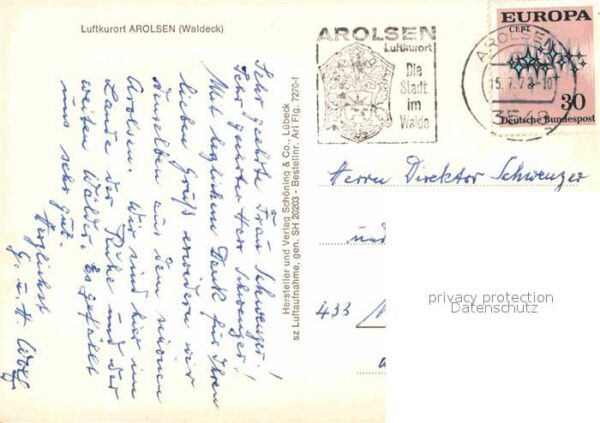 Luftkurort AROLSEN (Waldeck)
Sehr geehrte Frau Schwenger!
Sehr geehrter Herr Schwenger!
Mit herzlichem Dank für Ihren
lieben Gruß erwidern wir
denselben aus dem schönen
Arolsen. Wir sind hier im
Lande der Ruhe und der
weiten Wälder. Es gefällt
uns sehr gut.
Herzlichst
G. u. H.
Hersteller und Verlag Schöning & Co., Lübeck
sz Luftaufnahme, gen. SH 20203 - Bestellnr. Arl Flg. 7270-f
AROLSEN
Luftkurort
Die
Stadt
im
Walde
AROLSEN
15.7.72-10
EUROPA
CEPT
30
Deutsche Bundespost
Herrn Direktor Schwenger
und
433
privacy protection
Datenschutz